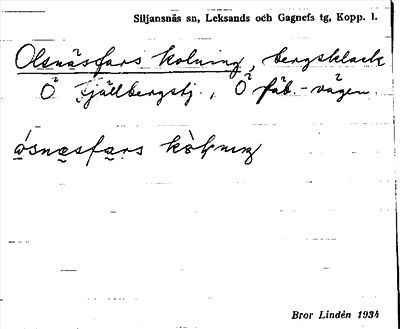 Siljansnäs sn, Leksands och Gagnefs tg, Kopp. l.
Olsnäsfars kolning, bergsklack
Ö Fjällbergstj., Ö fäb.-vägen.
ósnæsfars kòļnıŋ
Bror Lindén 1934